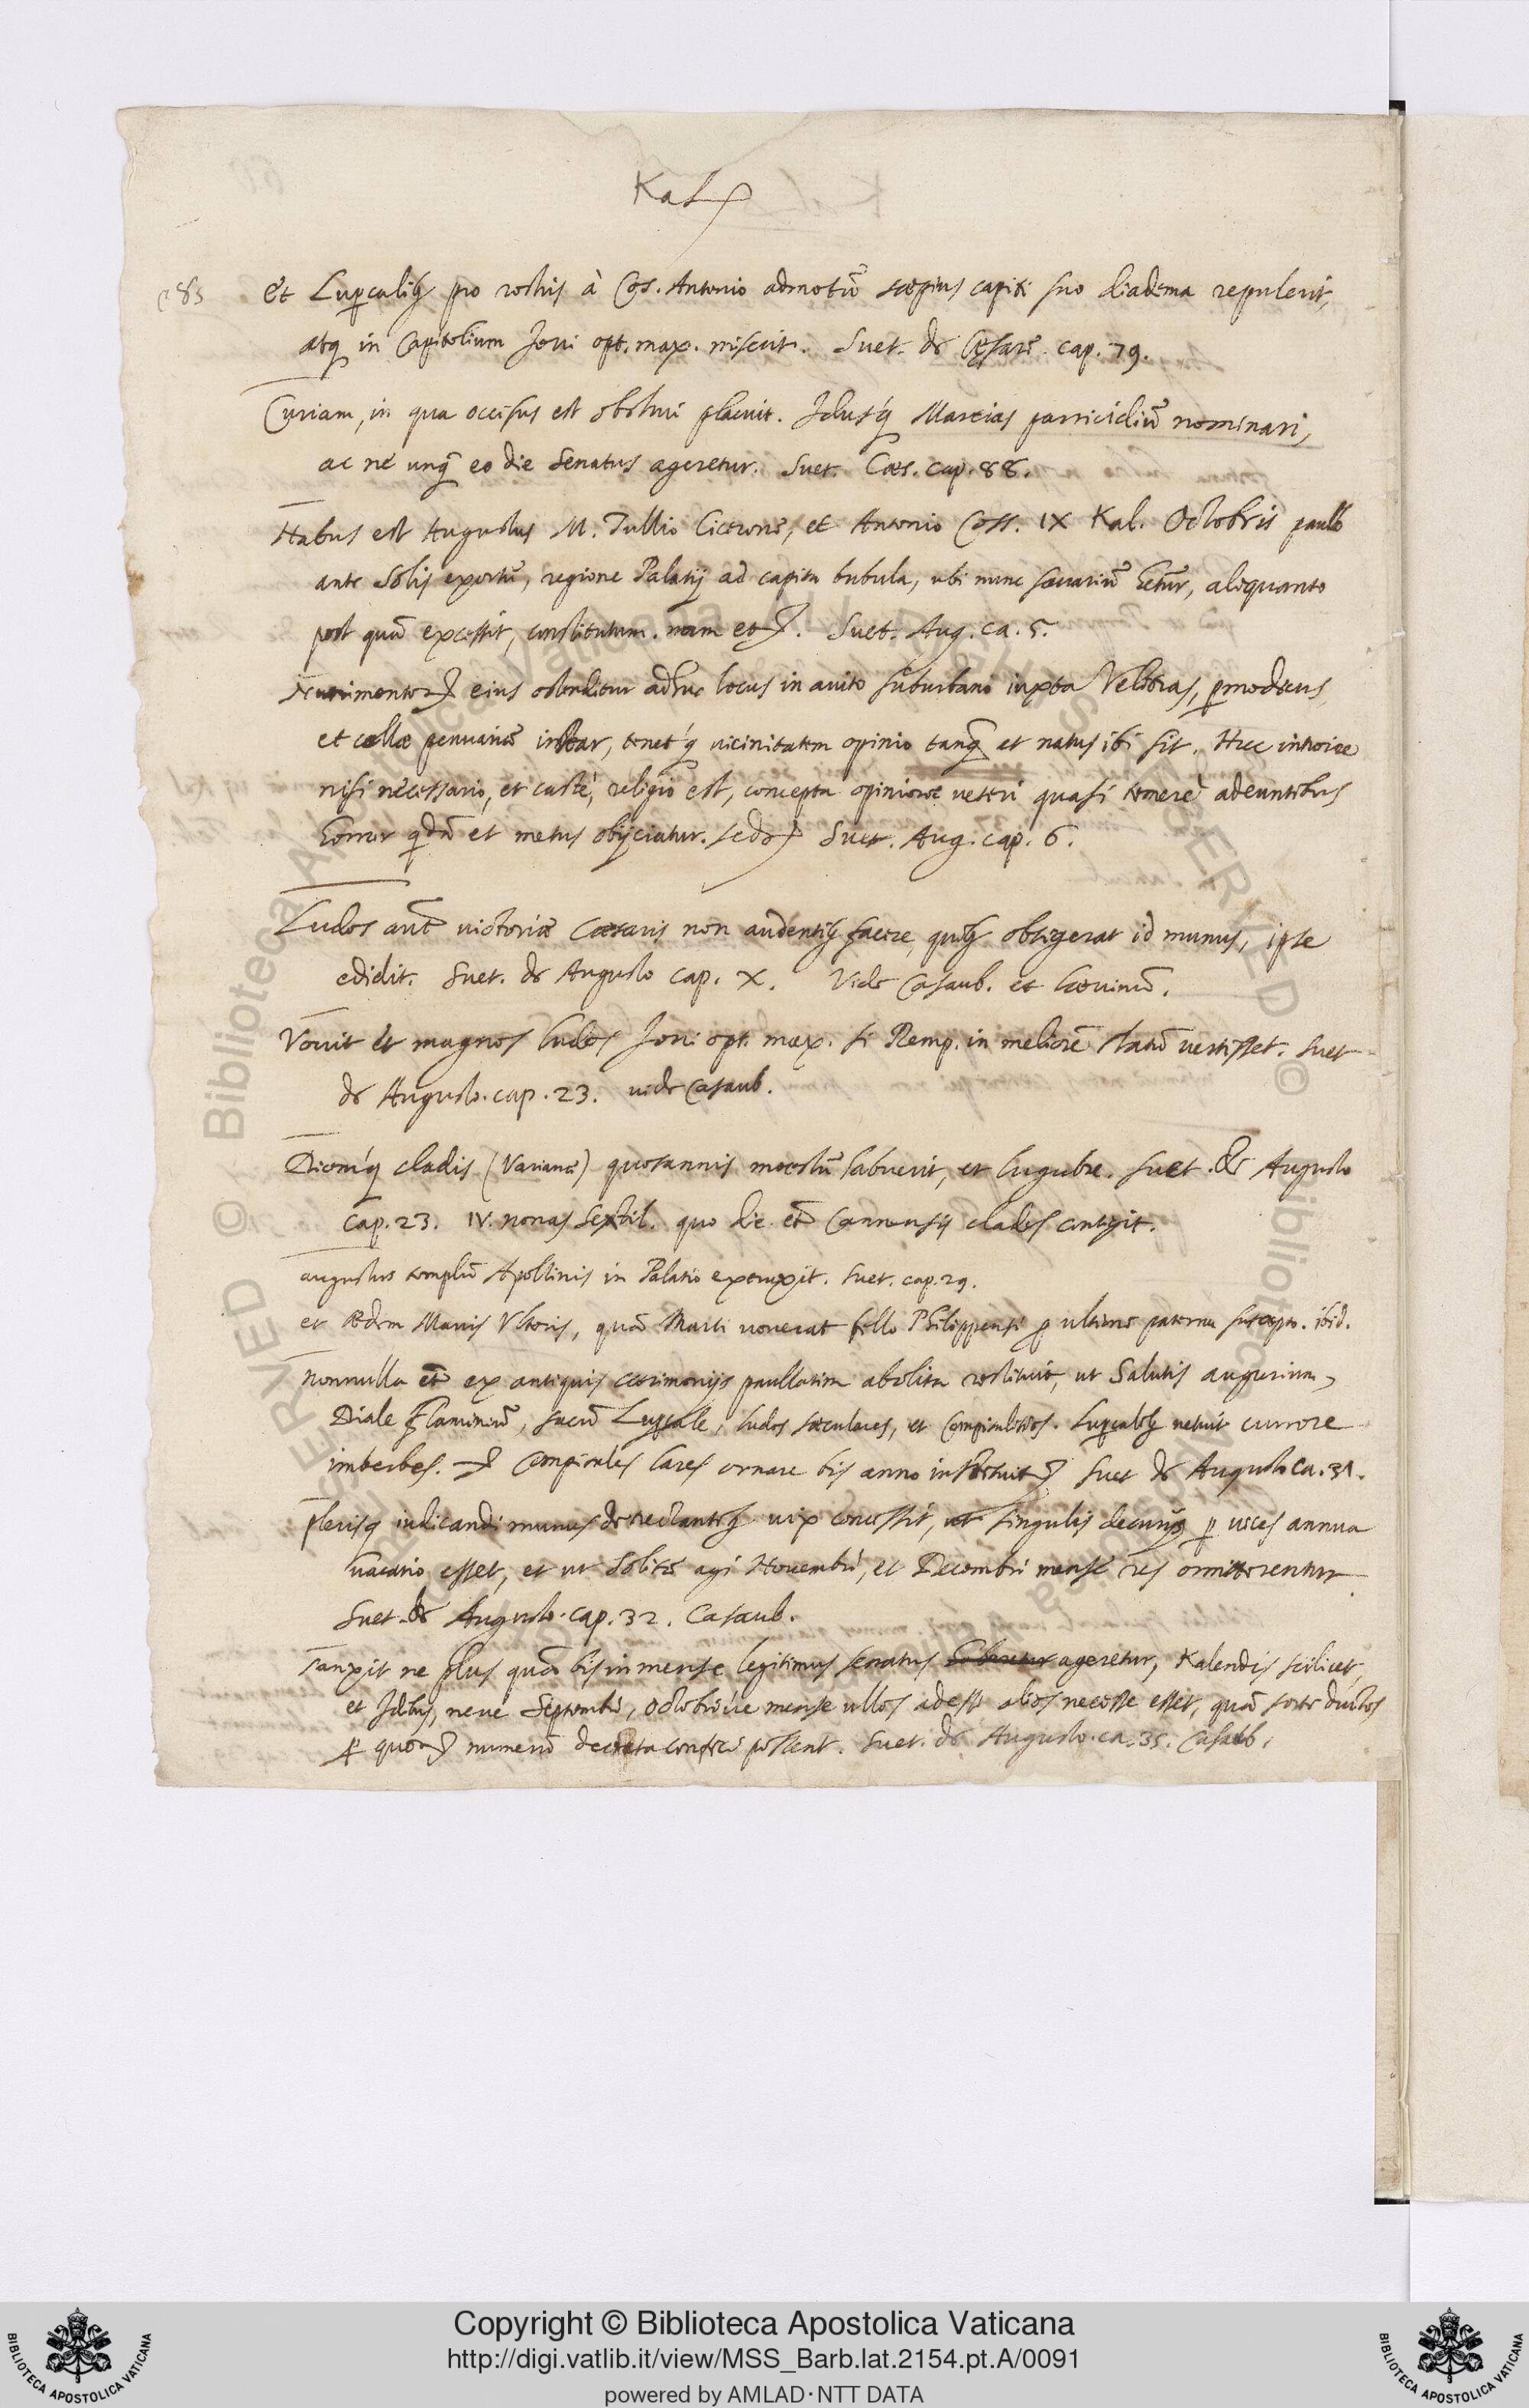 Kal
et Lupcalibq pro rostris à Cos. Antonio admotũ saepius capiti suo diadema repulerit,
atq in Capitolium Joui opt. max. miserit. Suet. de Cęsare. cap. 79.
Curiam, in qua occisus est obstrui placuit. Idusq́ Martias parricidiũ nominari,
ac ne unq̃ eo die Senatus ageretur. Suet. Caes. cap. 88.
Natus est Augustus M. Tullio Cicerone, et Antonio Coss. IX Kal. Octobris paullo
ante Solis exortũ, regione Palatij ad capita bubula, ubi nunc sacrariũ hẽtur, aliquanto
post quã excessit, constitutum. nam et. Suet. Aug. ca. 5.
Nutrimentor eius ostenditur adhuc locus in auito suburbano iuxta Velitras, pmodicus,
et cellae penuariae instar, tenet q́ uicinitatem opinio tanq̃ et natus ibi sit. Huc introire
nisi necessario, et castè, religio est, concepta opinione ueteri quasi temerè adeuntibus
horror qdã et metus obijciatur. sed Suet. Aug. cap. 6.
Ludos aut̃ uictoriae Caesaris non audentibq facere, quibq obtigerat id munus, ipse
edidit. Suet. de Augusto cap. X. Vide Casaub. et Laeuinũ.
Vouit et magnos ludos Joui opt. max. si Remp. in meliorẽ statũ uertisset. Suet
de Augusto. cap. 23. uide Casaub.
Diemq́ cladis (Varianae) quotannis moestũ habuerit, et lugubre. Suet. de Augusto
cap. 23. IV. nonas Sextil. quo die et̃ Cannensis clades contigit.
augustus templũ Apollinis in Palatio extruxit. Suet. cap. 29.
et aedem Martis Vltoris, quã Marti uouerat bello Philippensi p ultione paterna suscepto. ibid.
Nonnulla et̃ ex antiquis caerimonijs paullatim abolita restituit, ut Salutis augurium,
Diale Flaminiũ, sacrũ Lupcale, ludos saeculares, et Compitalitios. Lupcalibq uetuit currere
imberbes. Compitales Lares ornare bis anno instituit Suet de Augusto ca. 31.
Plerisq iudicandi munus detrectantibq uix concessit, ut singulis decurijs p uices annua
uacatio esset, et ut solitae agi Nouembri, et Decembri mense res omitterentur
Suet. de Augusto. cap. 32. Casaub.
Sanxit ne plus quã bis in mense legitimus senatus ageretur, Kalendis scilicet,
et Idibus, neue Septembri, Octobriue mense ullos adesse alios necesse esset, quã sorte ductos
p quor numerũ decreta confici possent. Suet. de Augusto. ca. 35. Casaub.
Copyright © Biblioteca Apostolica Vaticana
http://digi.vatlib.it/view/MSS_Barb.lat.2154.pt.A/0091
powered by AMLAD·NTT DATA
BIBLIOTECA APOSTOLICA VATICANA
BIBLIOTECA APOSTOLICA VATICANA